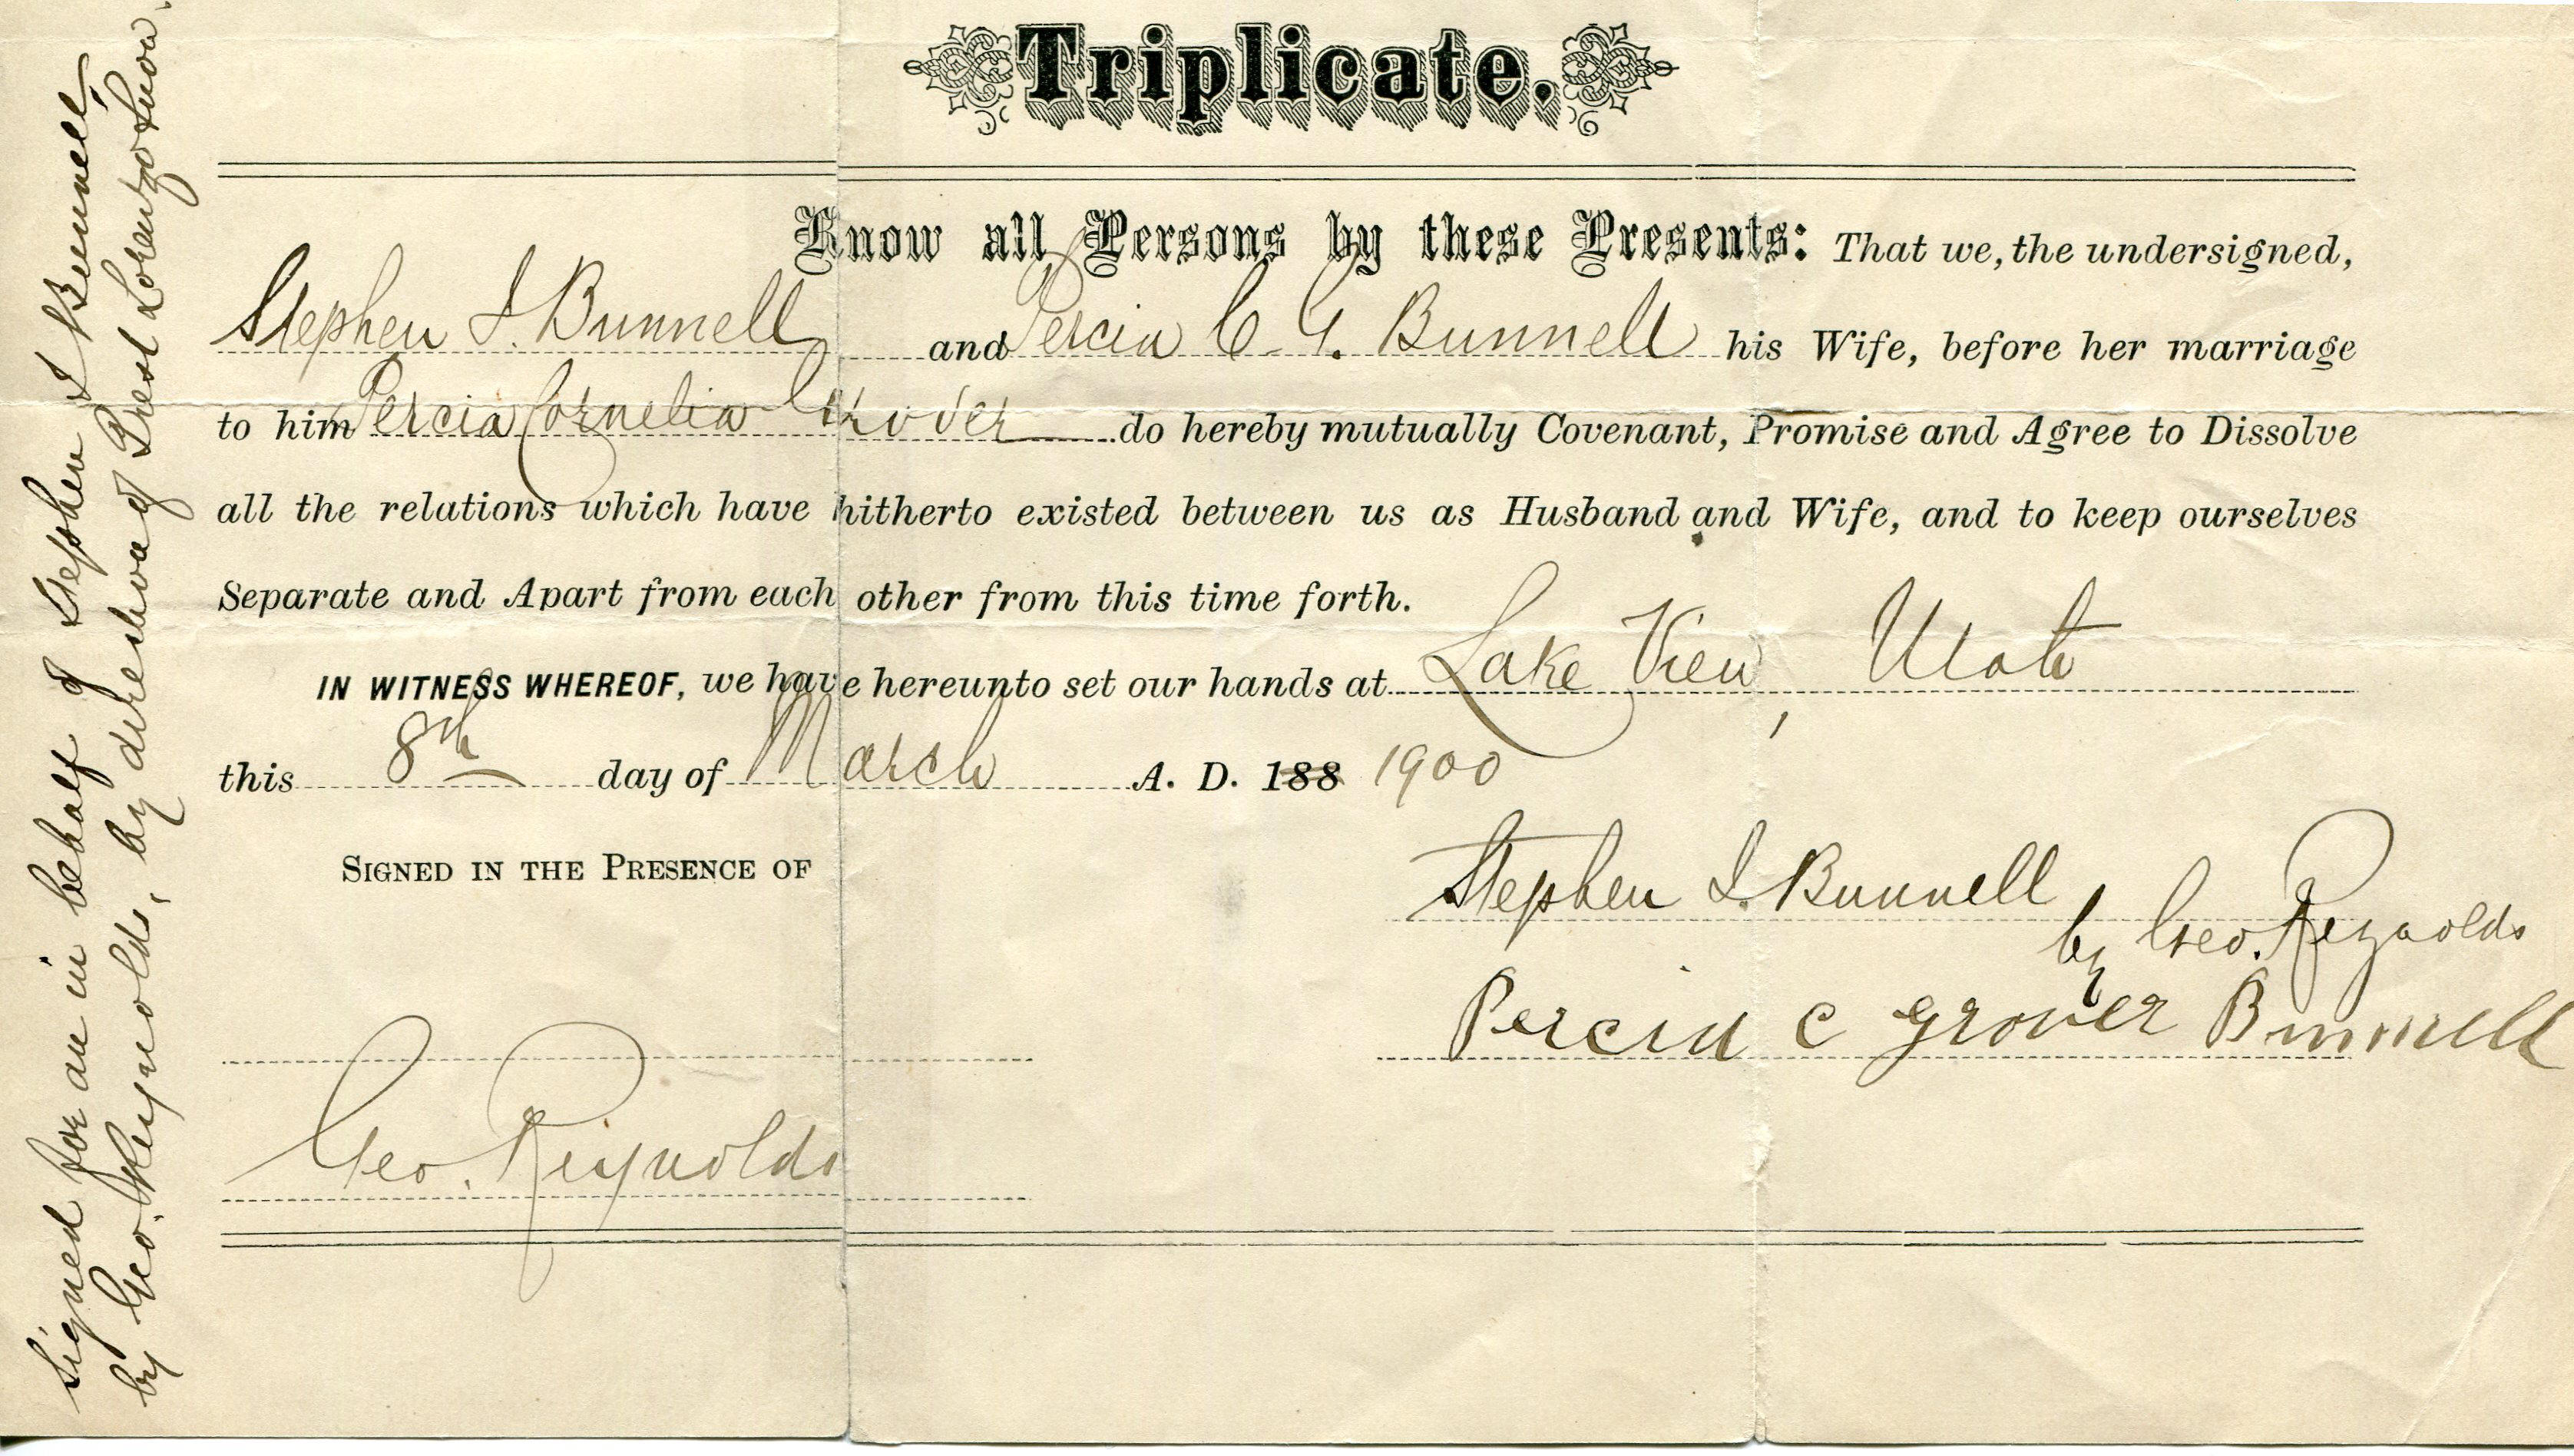 Triplicate.
Know all Persons by these Presents: That we, the undersigned,
Stephen I. Bunnell and Percia C. G. Bunnell his Wife, before her marriage
to him Percia Cornelia Grover do hereby mutually Covenant, Promise and Agree to Dissolve
all the relations which have hitherto existed between us as Husband and Wife, and to keep ourselves
Separate and Apart from each other from this time forth.
IN WITNESS WHEREOF, we have hereunto set our hands at Lake View, Utah
this 8th day of March A. D. 188 1900
SIGNED IN THE PRESENCE OF
Stephen I. Bunnell
by Geo. Reynolds
Percia C Grover Bunnell
Geo. Reynolds
Signed for an in behalf of Stephen I Bunnell,
by Geo. Reynolds, by direction of Prest Lorenzo Snow.